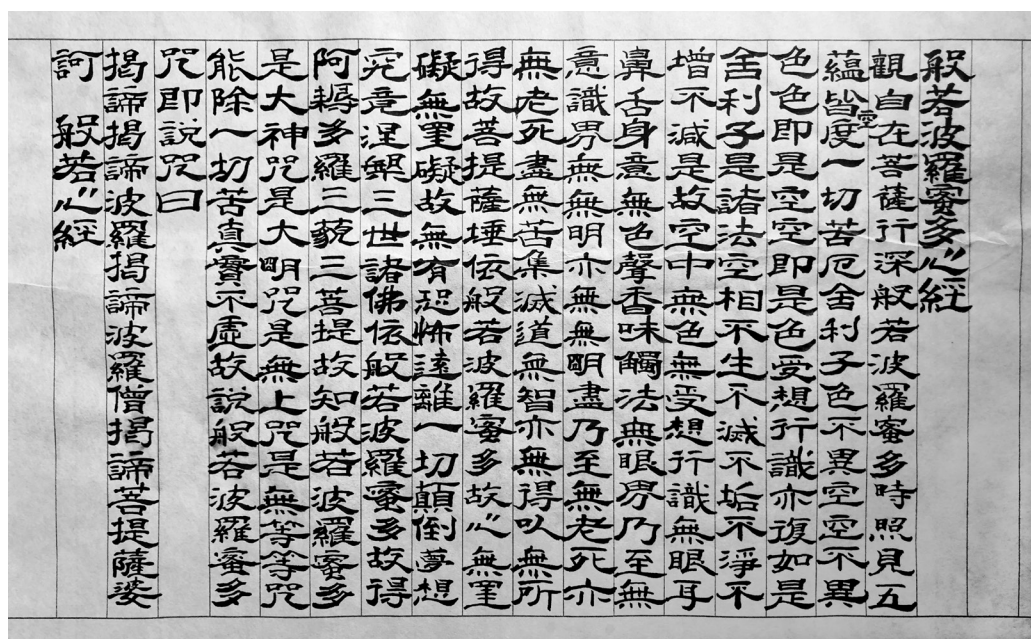 般若波羅蜜多心經
觀自在菩薩行深般若波羅蜜多時照見五
蘊皆空度一切苦厄舍利子色不異空空不異
色色即是空空即是色受想行識亦復如是
舍利子是諸法空相不生不滅不垢不淨不
增不減是故空中無色無受想行識無眼耳
鼻舌身意無色聲香味觸法無眼界乃至無
意識界無無明亦無無明盡乃至無老死亦
無老死盡無苦集滅道無智亦無得以無所
得故菩提薩埵依般若波羅蜜多故心無罣
礙無罣礙故無有恐怖遠離一切顛倒夢想
究竟涅槃三世諸佛依般若波羅蜜多故得
阿耨多羅三藐三菩提故知般若波羅蜜多
是大神咒是大明咒是無上咒是無等等咒
能除一切苦真實不虛故說般若波羅蜜多
咒即說咒曰
揭諦揭諦波羅揭諦波羅僧揭諦菩提薩婆
訶　般若心經